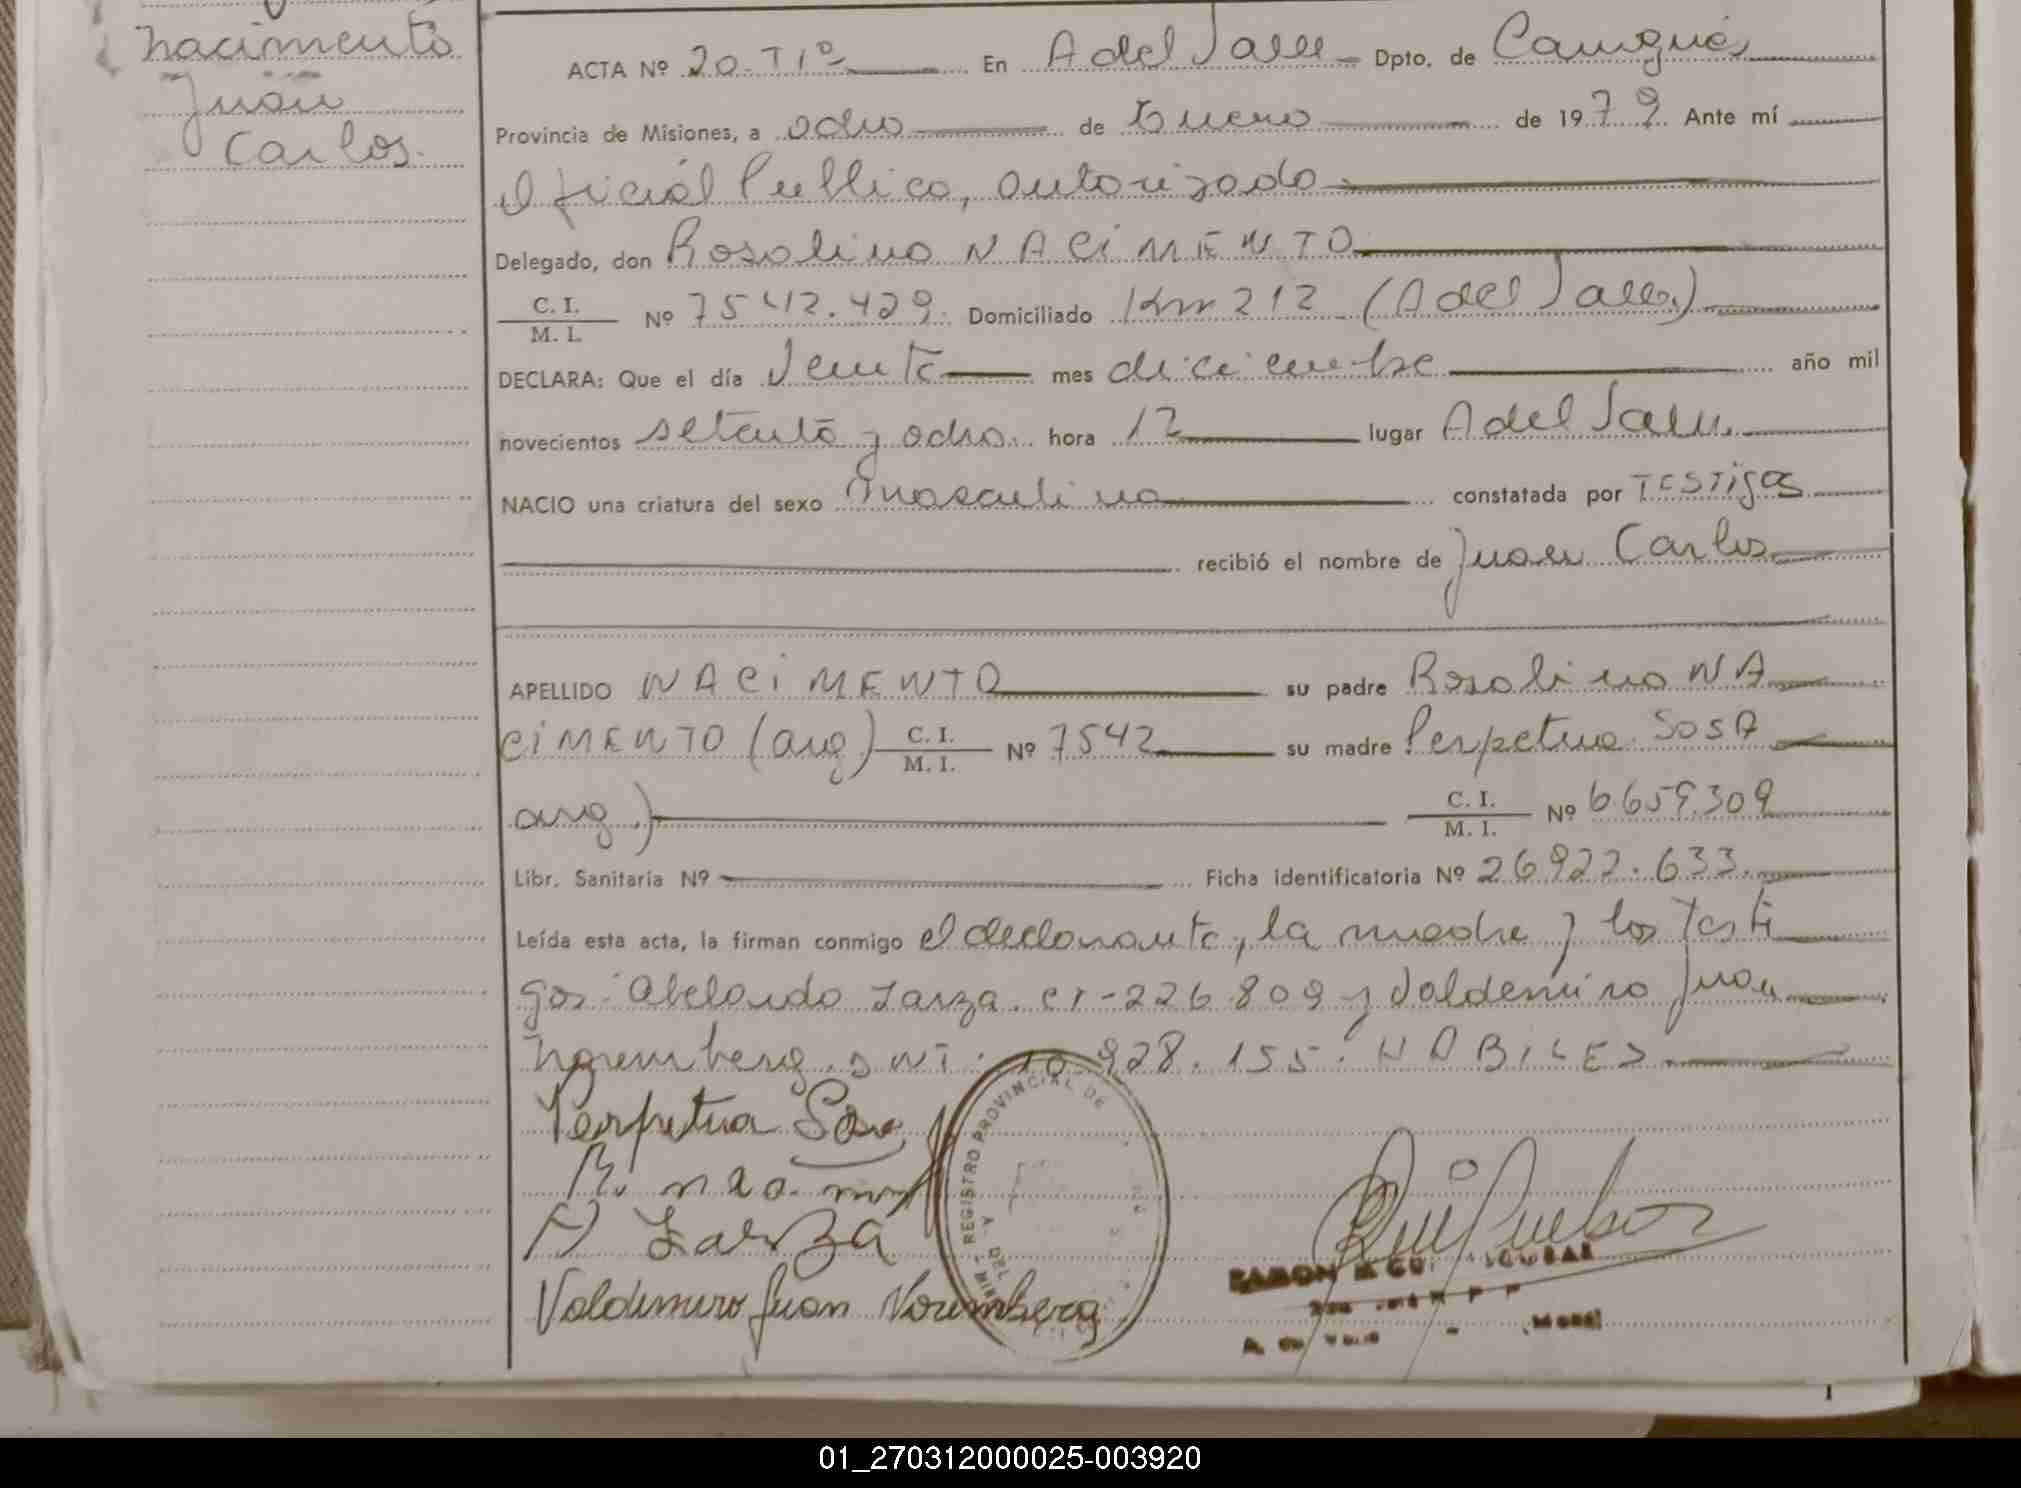 Nacimento
Juan
Carlos.
ACTA Nº 20. T1º En A del Valle Dpto. de Cainguás
Provincia de Misiones, a ocho de Enero de 1979. Ante mí
Oficial Publico, autorizado
Delegado, don Rosolino NACiMENTO
C. I. / M. I. Nº 7542.429. Domiciliado Km 212 (A del Valle)
DECLARA: Que el día Veinte mes diciembre año mil
novecientos setenta y ocho. hora 12 lugar A del Valle.
NACIO una criatura del sexo masculino constatada por TESTigos
recibió el nombre de Juan Carlos
APELLIDO NACiMENTO su padre Rosolino NA
CiMENTO (arg) C. I. / M. I. Nº 7542 su madre Perpetua SOSA
arg.) C. I. / M. I. Nº 6659.309
Libr. Sanitaria Nº Ficha identificatoria Nº 26922.633.
Leída esta acta, la firman conmigo el declarante, la madre y los Testi
gos: Abelardo Zarza. CI-226.809 y Valdemiro Juan
Noremberg. DNI. 10.928.155. HABILES
Perpetua Sosa
A Zarza
Valdimiro Juan Noremberg
REGISTRO PROVINCIAL DE
RAMON
01_270312000025-003920